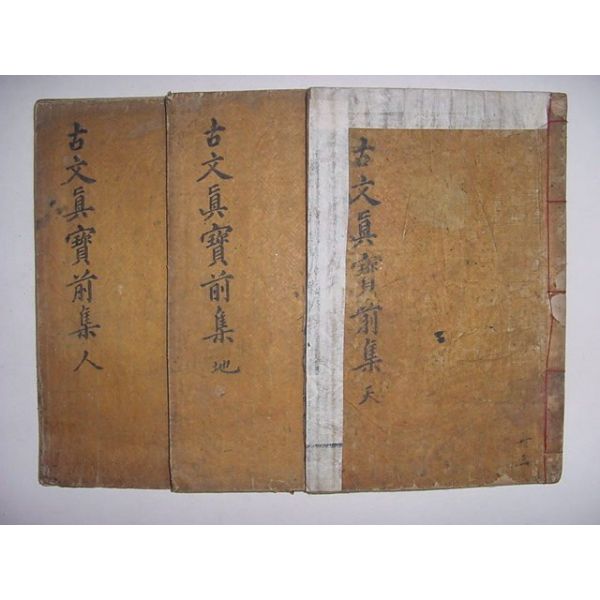 古文眞寶前集 天
古文眞寶前集 地
古文眞寶前集 人